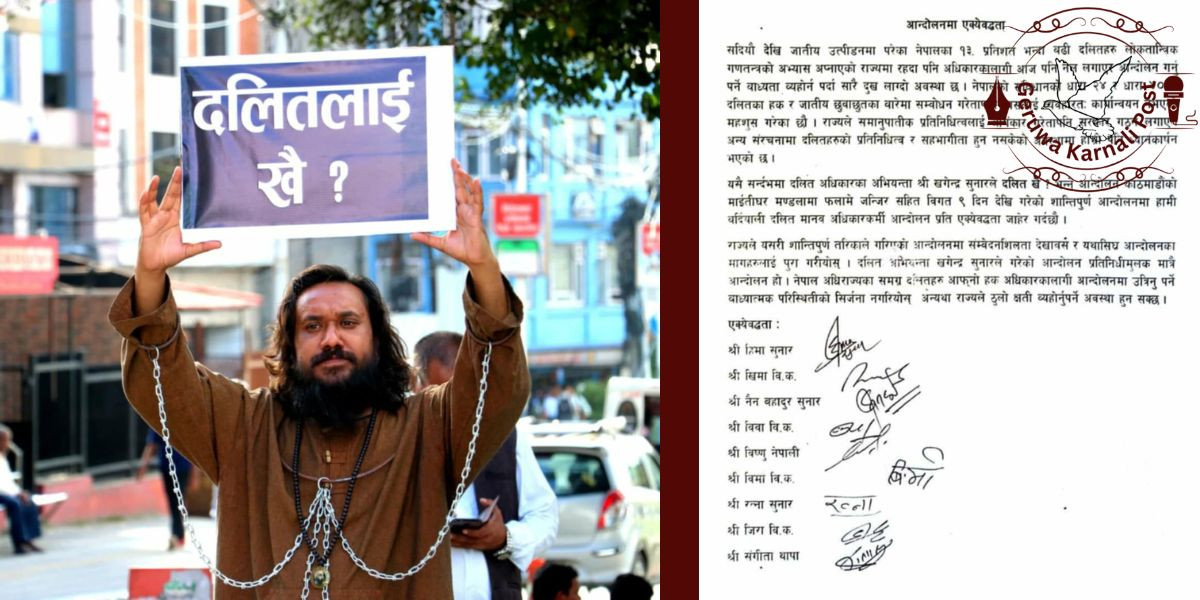 दलितलाई
खै ?
आन्दोलनमा एक्येवद्धता
सदियौ देखि जातीय उत्पीडनमा परेका नेपालका १३ प्रतिशत भन्दा बढी दलितहरु लोकतान्त्रिक
गणतन्त्रको अभ्यास अप्नाएको राज्यमा रहदा पनि अधिकारकालागी आज पनि नेल लगाएर आन्दोलन गर्न
पर्ने बाध्यता ब्यहोर्न पर्दा सारै दुख लाग्दो अवस्था छ । २४ र धारा
दलितका हक र जातीय छुवाछुतका बारेमा सम्वोधन कार्यान्वयन
महशुस गरेका छौ । राज्यले समानुपातीक प्रतिनिधित्वलाई
अन्य संरचनामा दलितहरुको प्रतिनिधित्व र सहभागीता हुन नसकेको
भएको छ ।
यसै सन्दर्भमा दलित अधिकारका अभियन्ता श्री खगेन्द्र सुनारले दलित खै ! भन्ने आन्दोलन काठमाडौको
माईतीघर मण्डलामा फलामे जन्जिर सहित विगत ९ दिन देखि गरेको शान्तिपुर्ण आन्दोलनमा हामी
बर्दियाली दलित मानव अधिकारकर्मी आन्दोलन प्रति एक्येवद्धता जाहेर गर्दछौ ।
राज्यले यसरी शान्तिपुर्ण तरिकाले गरिएको आन्दोलनमा संम्वेदनशिलता देखावस र यथासिघ्र आन्दोलनका
मागहरुलाई पुरा गरीयोस् । दलित अभियन्ता खगेन्द्र सुनारले गरेको आन्दोलन प्रतिनिधीमुलक मात्रै
आन्दोलन हो । नेपाल अधिराज्यका समग्र दलितहरु आफ्नो हक अधिकारकालागी आन्दोलनमा उत्रिनु पर्ने
बाध्यात्मक परिस्थितीको सिर्जना नगरियोस् अन्यथा राज्यले ठुलो क्षती ब्यहोर्नुपर्ने अवस्था हुन सक्छ ।
एक्येवद्धता :
श्री हिमा सुनार
श्री खिमा वि.क.
श्री नैन बहादुर सुनार
श्री विवा वि.क.
श्री विष्णु नेपाली
श्री विमा वि.क.
श्री रत्ना सुनार रत्ना
श्री जिरा वि.क.
श्री संगीता थापा
Geruwa Karnali Post